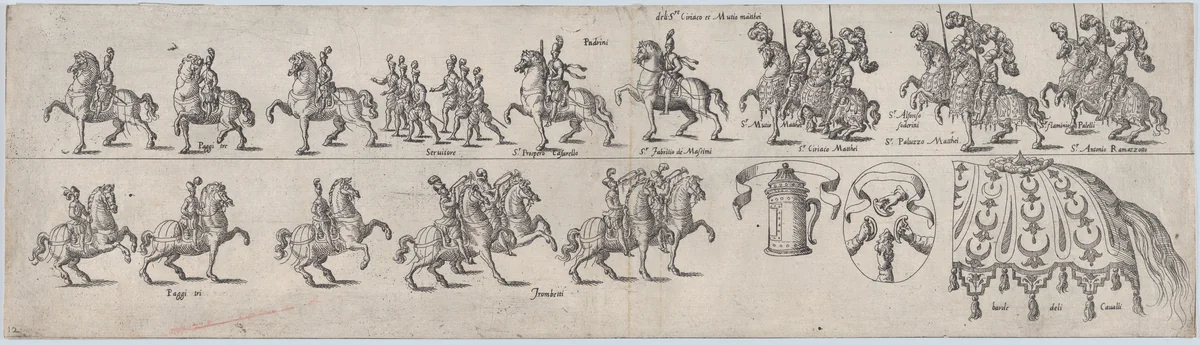 deli S.ri Ciriaco et Mutio matthei
Padrini
Paggi tre
Seruitore
S.r Prospero Cafarello
S.r Fabritio de Massimi
S.r Mutio Matthei
S.r Ciriaco Matthei
S.r Alfonso
S.r Paluzzo Matthei
S.r flaminio Paleli
S.r Antonio Ramazzotto
Paggi tri
Trombetti
barde deli Caualli
12